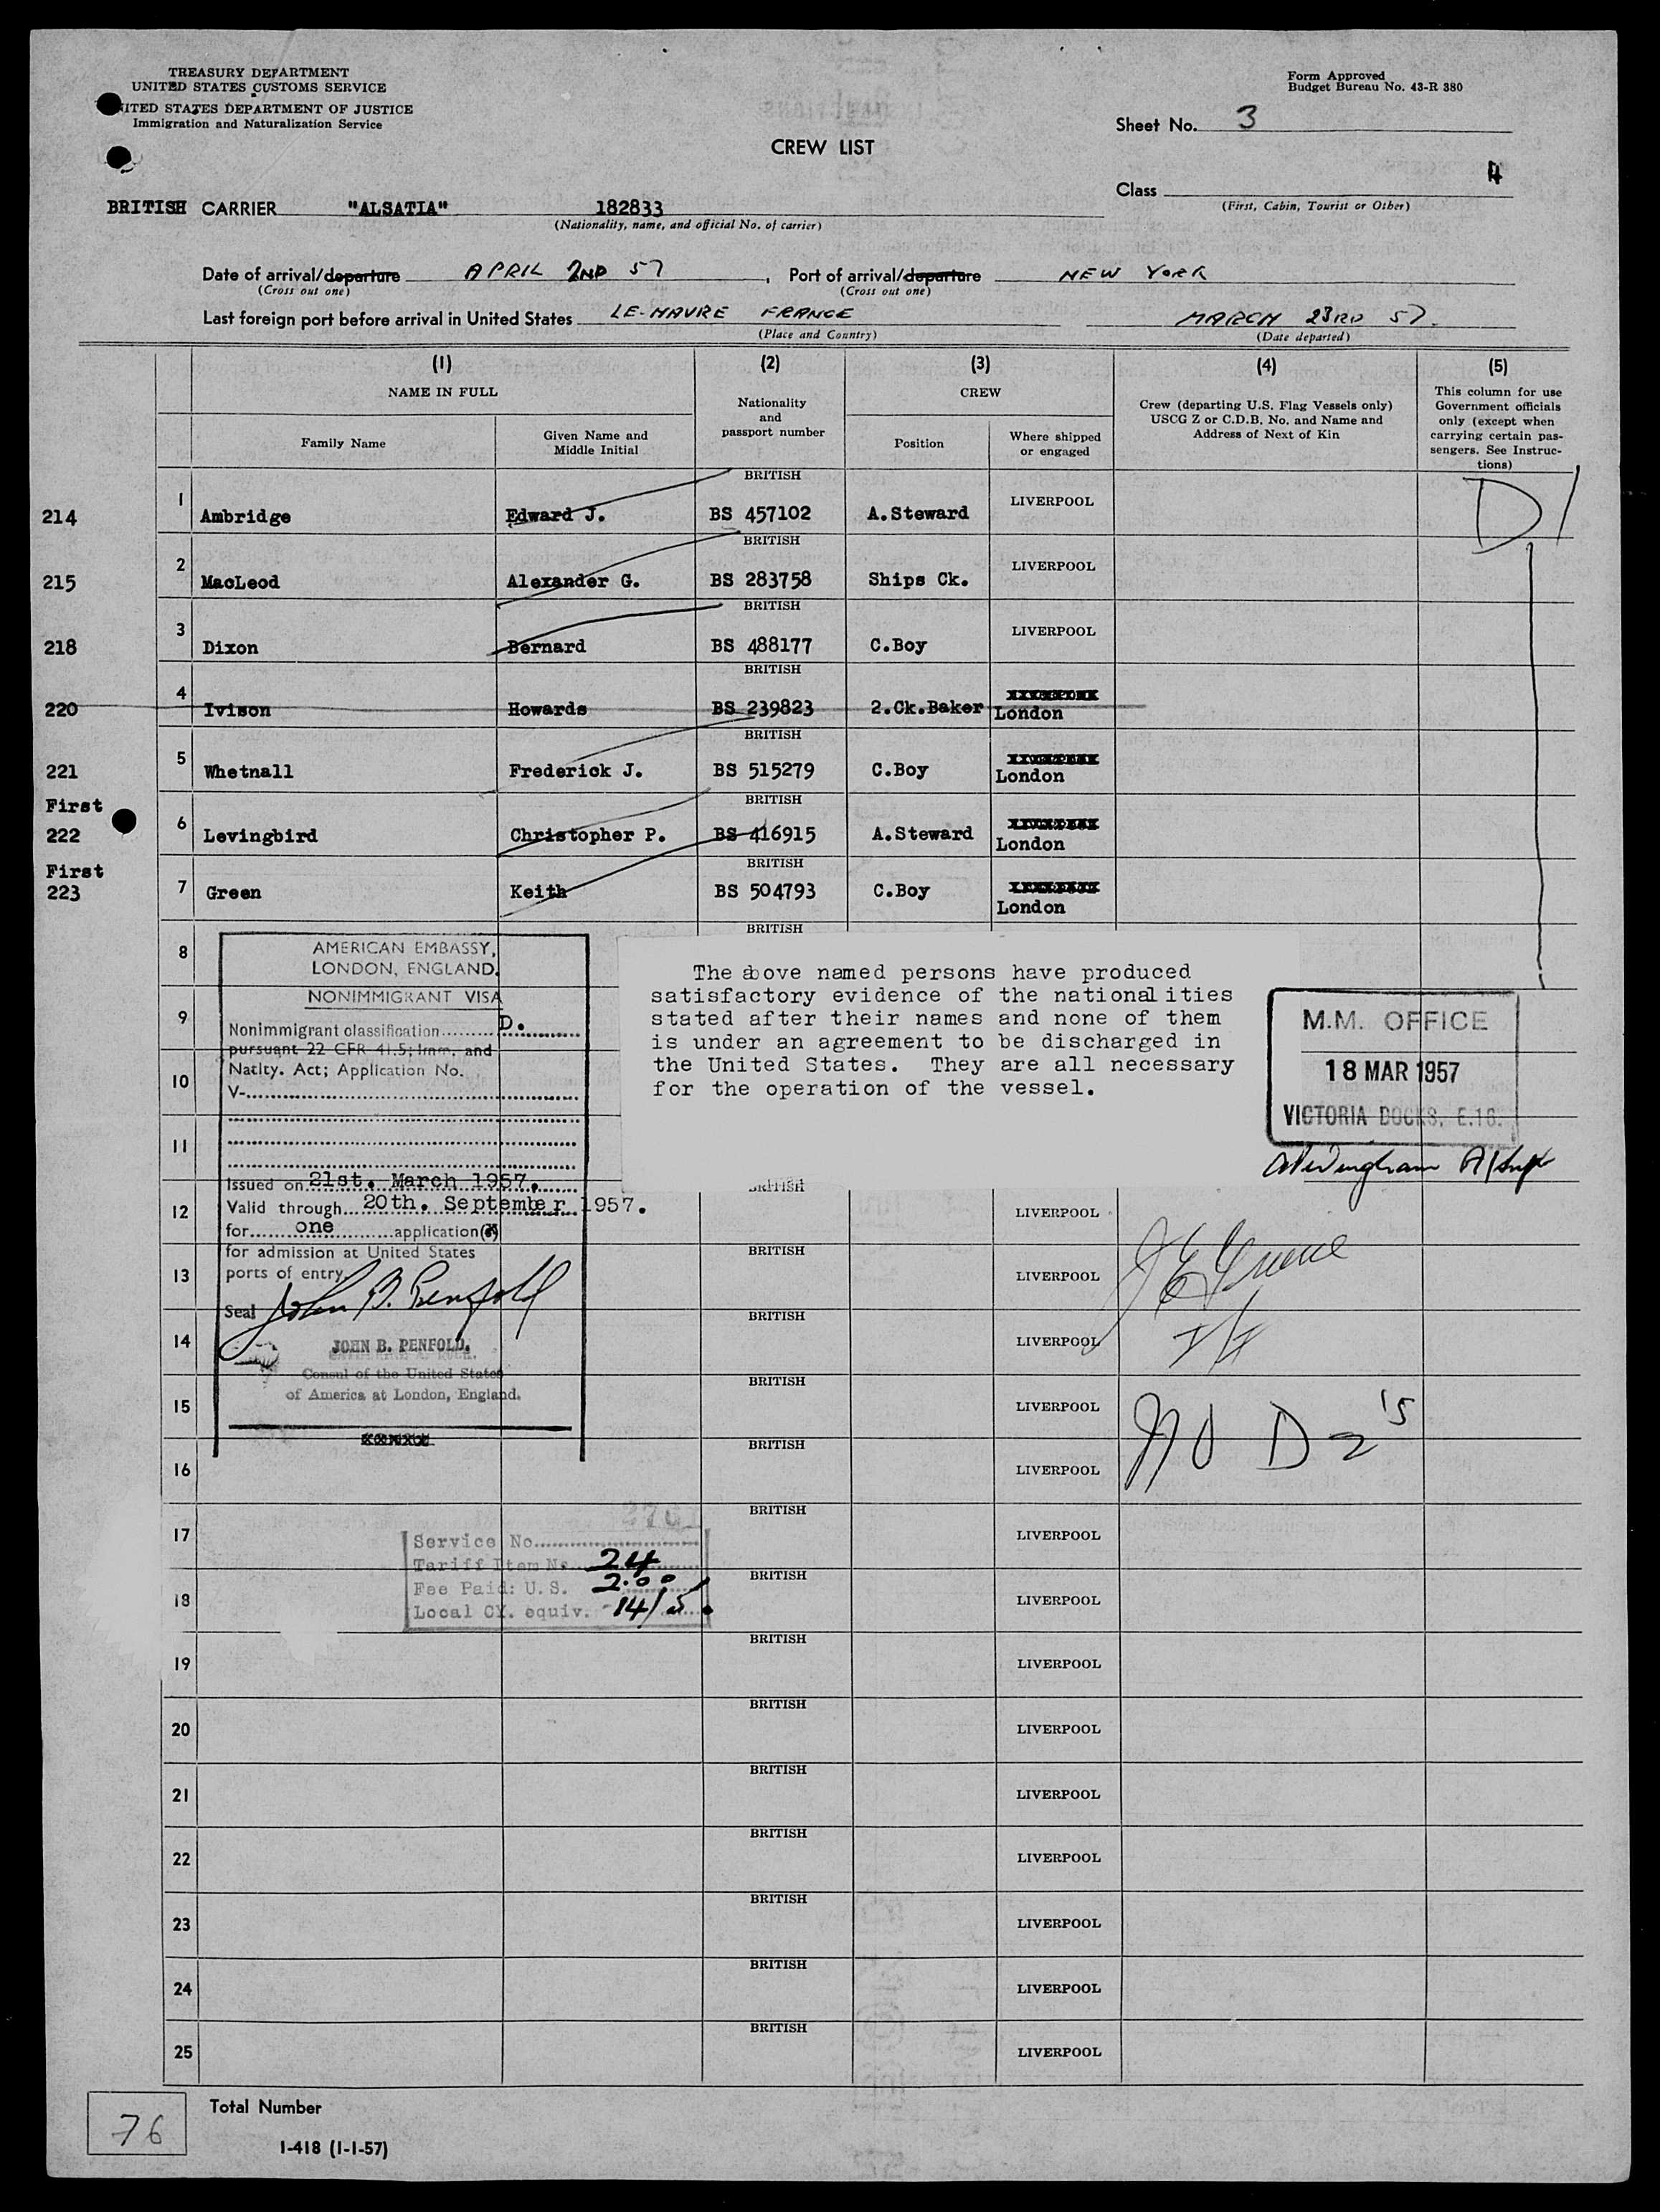 TREASURY DEPARTMENT
UNITED STATES CUSTOMS SERVICE
ITED STATES DEPARTMENT OF JUSTICE
Immigration and Naturalization Service
Form Approved
Budget Bureau No. 43-R 380
Sheet No. 3
CREW LIST
4
Class
(First, Cabin, Tourist or Other)
BRITISH CARRIER "ALSATIA" 182833
(Nationality, name, and official No. of carrier)
Date of arrival/departure APRIL 2ND 57, Port of arrival/departure NEW YORK
(Cross out one) (Cross out one)
Last foreign port before arrival in United States LE-HAVRE FRANCE MARCH 23RD 57.
(Place and Country) (Date departed)
(1) (2) (3) (4) (5)
NAME IN FULL
Family Name
Given Name and
Middle Initial
Nationality
and
passport number
CREW
Position
Where shipped
or engaged
Crew (departing U.S. Flag Vessels only)
USCG Z or C.D.B. No. and Name and
Address of Next of Kin
This column for use
Government officials
only (except when
carrying certain pas-
sengers. See Instruc-
tions)
BRITISH
214 1 Ambridge Edward J. BS 457102 A.Steward LIVERPOOL D1
BRITISH
215 2 MacLeod Alexander G. BS 283758 Ships Ck. LIVERPOOL
BRITISH
218 3 Dixon Bernard BS 488177 C.Boy LIVERPOOL
BRITISH
220 4 Ivison Howards BS 239823 2.Ck.Baker London
BRITISH
221 5 Whetnall Frederick J. BS 515279 C.Boy London
First
BRITISH
222 6 Levingbird Christopher P. BS 416915 A.Steward London
First
BRITISH
223 7 Green Keith BS 504793 C.Boy London
BRITISH
8
9
10
11
AMERICAN EMBASSY,
LONDON, ENGLAND.
NONIMMIGRANT VISA
Nonimmigrant classification D.
pursuant 22 CFR 41.5; Imm. and
Natlty. Act; Application No.
V-
Issued on 21st. March 1957.
Valid through 20th. September 1957.
for one application(s)
for admission at United States
ports of entry.
Seal John B. Penfold
JOHN B. PENFOLD.
Consul of the United States
of America at London, England.
The above named persons have produced
satisfactory evidence of the nationalities
stated after their names and none of them
is under an agreement to be discharged in
the United States. They are all necessary
for the operation of the vessel.
M.M. OFFICE
18 MAR 1957
VICTORIA DOCKS, E.16.
12 BRITISH LIVERPOOL
13 BRITISH LIVERPOOL
14 BRITISH LIVERPOOL
15 BRITISH LIVERPOOL
NO D2's
16 BRITISH LIVERPOOL
17 BRITISH LIVERPOOL
Service No.
Tariff Item No. 24
Fee Paid: U.S. 2.00
Local CY. equiv. 14/5.
18 BRITISH LIVERPOOL
19 BRITISH LIVERPOOL
20 BRITISH LIVERPOOL
21 BRITISH LIVERPOOL
22 BRITISH LIVERPOOL
23 BRITISH LIVERPOOL
24 BRITISH LIVERPOOL
25 BRITISH LIVERPOOL
76
Total Number
I-418 (1-1-57)